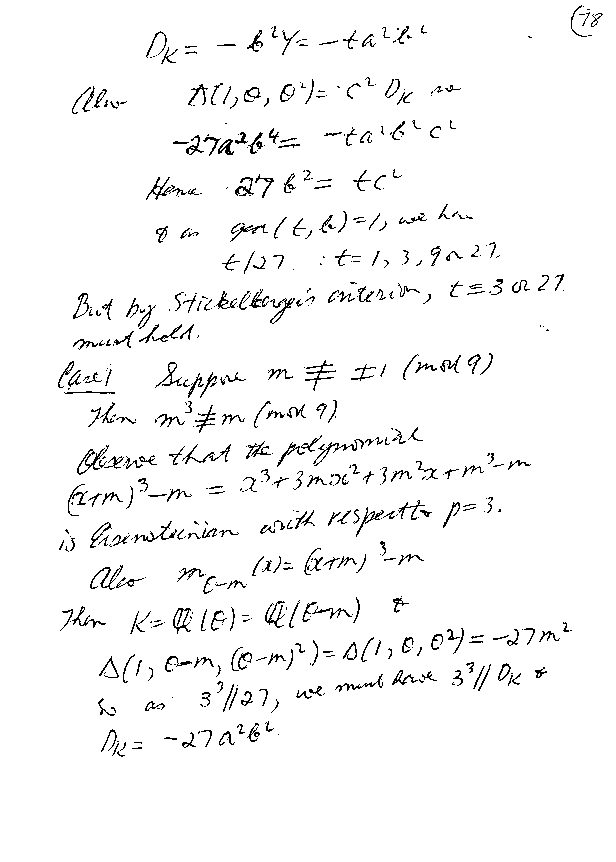 (78
D_K = - b²Y = - ta²b²
Also Δ(1, θ, θ²) = c² D_K so
-27a²b⁴ = -ta²b²c²
Hence 27b² = tc²
& as gcd(t, b) = 1, we have
t/27. ∴ t = 1, 3, 9 or 27.
But by Stickelberger's criterion, t = 3 or 27
must hold.
Case 1 Suppose m ≢ ±1 (mod 9)
Then m³ ≢ m (mod 9)
Observe that the polynomial
(x+m)³-m = x³+3mx²+3m²x+m³-m
is Eisensteinian with respect to p=3.
Also m_{θ-m}(x) = (x+m)³-m
Then K = ℚ(θ) = ℚ(θ-m) &
Δ(1, θ-m, (θ-m)²) = Δ(1, θ, θ²) = -27m²
So as 3³//27, we must have 3³//D_K &
D_K = -27a²b².